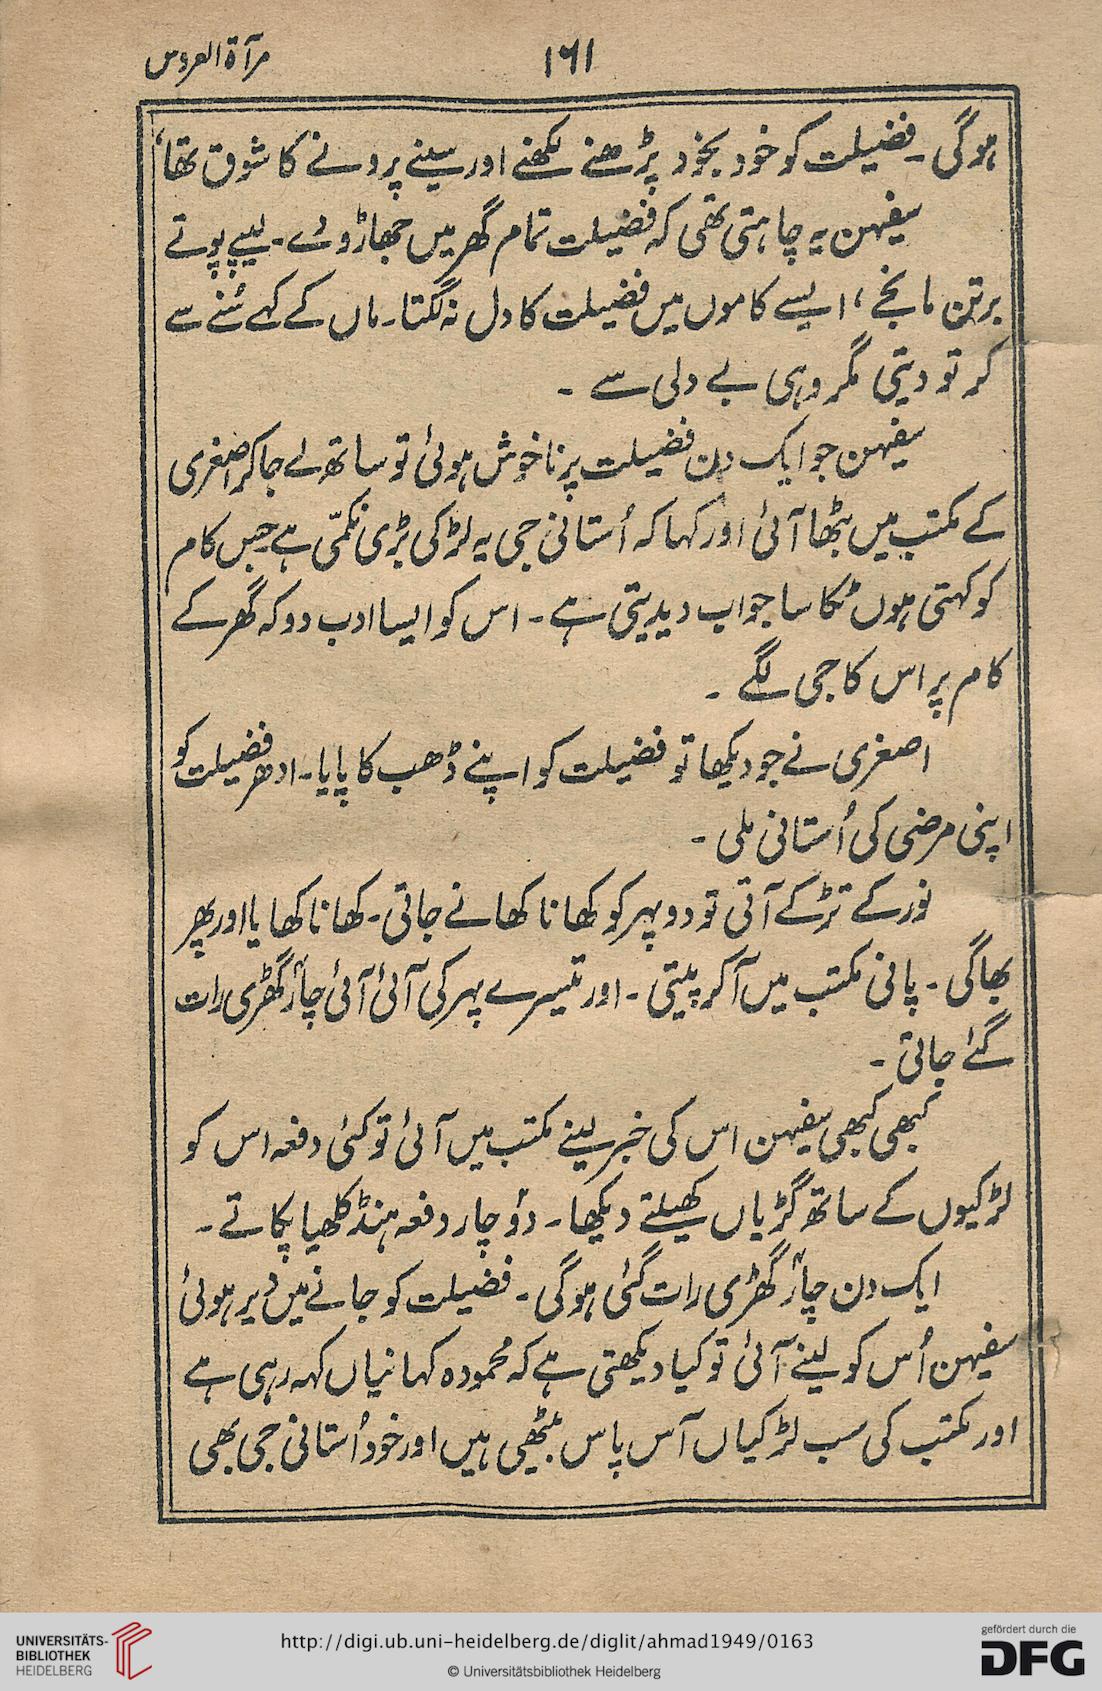 مرآۃ العروس
۱۶۱
ہوگی۔ فضیلت کو خود بخود پڑھنے لکھنے اور سینے پرونے کا شوق تھا،
سفیہن یہ چاہتی تھی کہ فضیلت تمام گھر میں جھاڑو دے۔ لیپے پوتے
برتن مانجے، ایسے کاموں میں فضیلت کا دل نہ لگتا۔ ماں کے کہے سُنے سے
کر تو دیتی مگر وہی بے دلی سے ۔
سفیہن جو ایک دن فضیلت پر ناخوش ہوئی تو ساتھ لے جا کر اصغری
کے مکتب میں بٹھا آئی اور کہا کہ اُستانی جی یہ لڑکی بڑی نکمّی ہے جس کام
کو کہتی ہوں ٹکا سا جواب دیدیتی ہے۔ اس کو ایسا ادب دو کہ گھر کے
کام پر اس کا جی لگے ۔
اصغری نے جو دیکھا تو فضیلت کو اپنے ڈھب کا پایا۔ ادھر فضیلت کو
اپنی مرضی کی اُستانی ملی ۔
نور کے تڑکے آتی تو دوپہر کو کھانا کھانے جاتی۔ کھانا کھایا اور پھر
بھاگی ۔ پانی مکتب میں آکر پیتی ۔ اور تیسرے پہر کی آئی آئی چار گھڑی رات
گئے جاتی ۔
کبھی کبھی سفیہن اس کی خبر لینے مکتب میں آئی تو کئی دفعہ اس کو
لڑکیوں کے ساتھ گڑیاں کھیلتے دیکھا۔ دو چار دفعہ ہنڈ کلھیا پکاتے ۔
ایک دن چار گھڑی رات گئی ہوگی ۔ فضیلت کو جانے میں دیر ہوئی
سفیہن اُس کو لینے آئی تو کیا دیکھتی ہے کہ محمودہ کہانیاں کہہ رہی ہے
اور مکتب کی سب لڑکیاں آس پاس بیٹھی ہیں اور خود اُستانی جی بھی
UNIVERSITÄTS-
BIBLIOTHEK
HEIDELBERG
http://digi.ub.uni-heidelberg.de/diglit/ahmad1949/0163
© Universitätsbibliothek Heidelberg
gefördert durch die
DFG